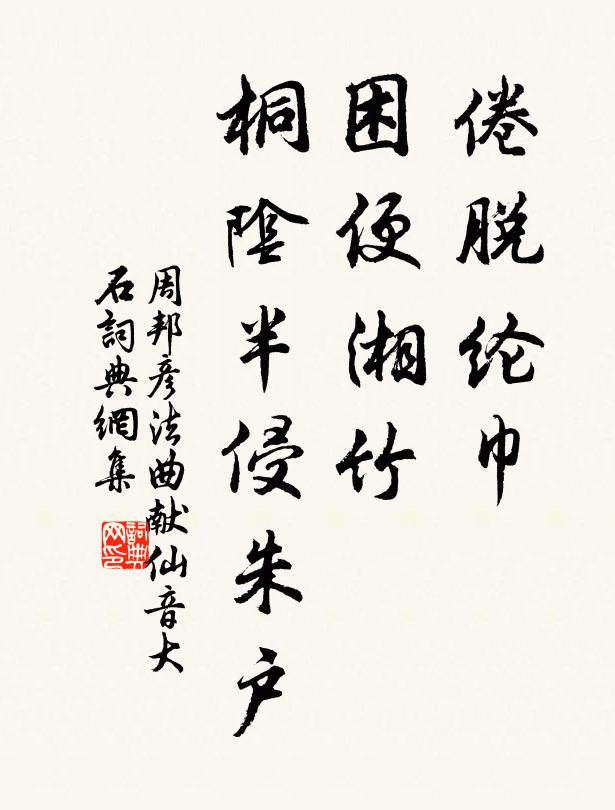 倦脱纶巾
困便湘竹
桐陰半侵朱户
周邦彦法曲献仙音大
石詞典網集
詞典网印